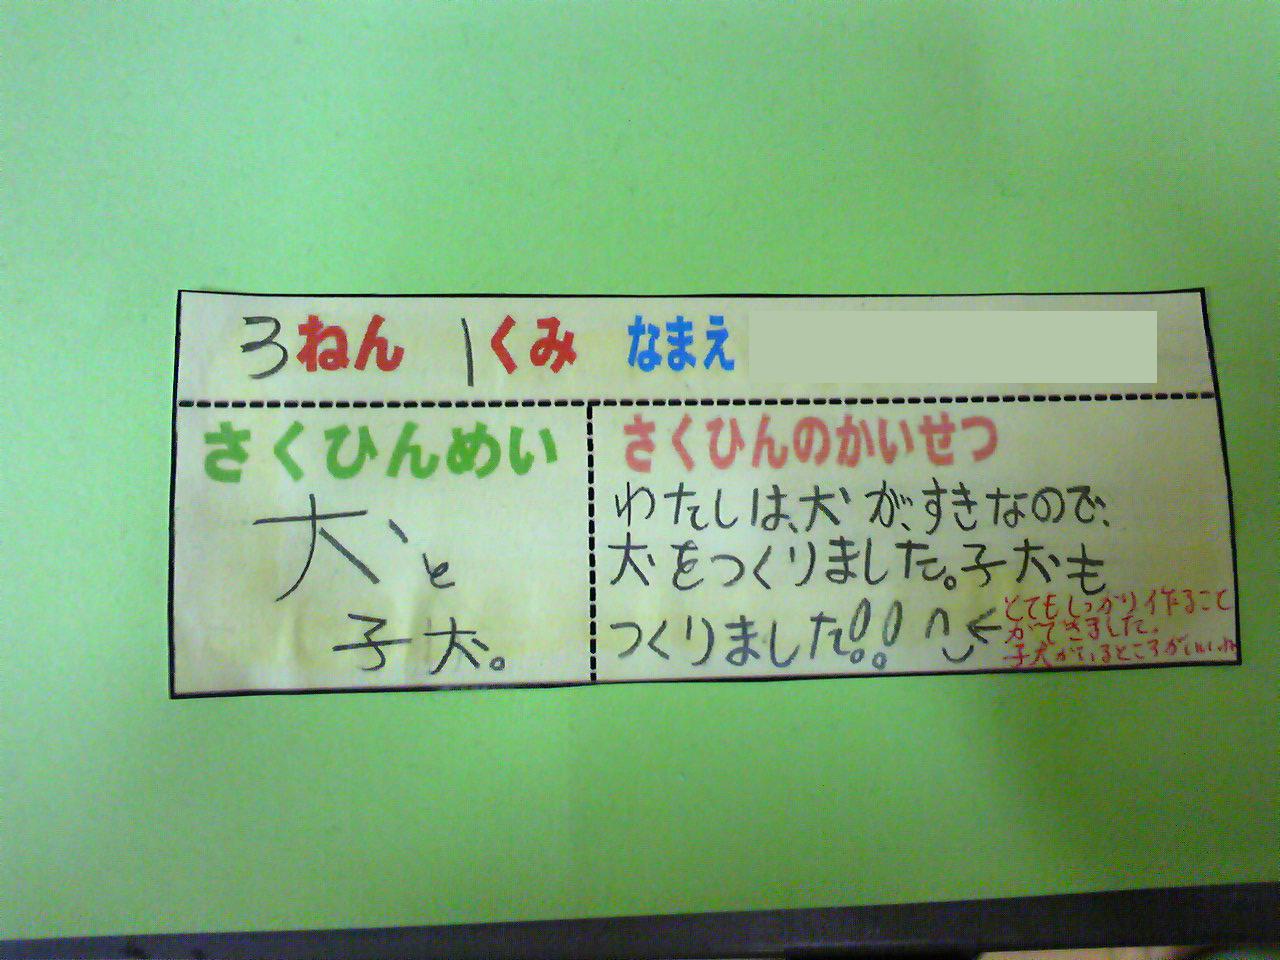 3ねん 1くみ なまえ
さくひんめい
犬と
子犬。
さくひんのかいせつ
わたしは、犬が、すきなので、
犬をつくりました。子犬も
つくりました!!
とてもしっかり作ること
ができました。
子犬がいるところがいいね